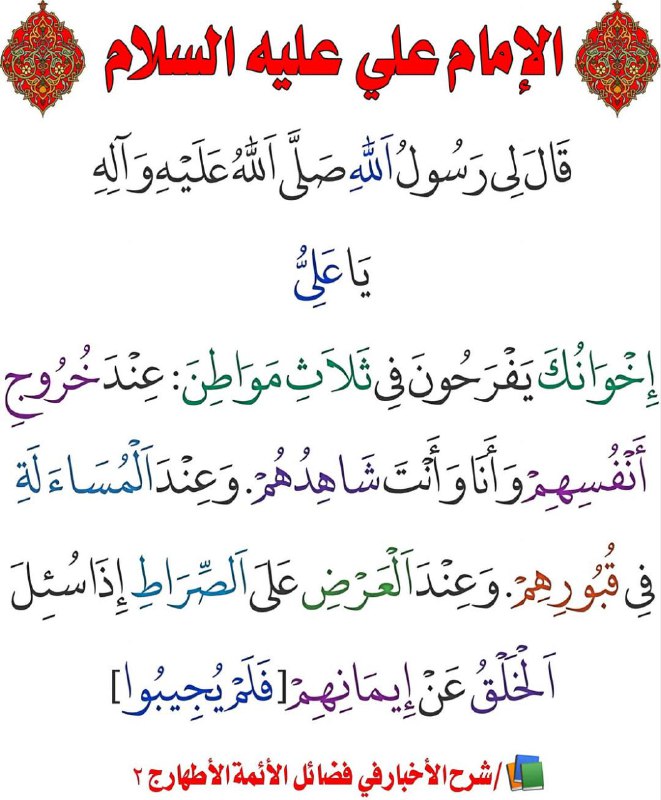 الإمام علي عليه السلام
قَالَ لِى رَسُولُ اَللّٰهِ صَلَّى اَللّٰهُ عَلَيْهِ وَآلِهِ
يَا عَلِىُّ
إِخْوَانُكَ يَفْرَحُونَ فِى ثَلاَثِ مَوَاطِنَ: عِنْدَ خُرُوجِ
أَنْفُسِهِمْ وَأَنَا وَأَنْتَ شَاهِدُهُمْ. وَعِنْدَ اَلْمُسَاءَلَةِ
فِي قُبُورِهِمْ. وَعِنْدَ اَلْعَرْضِ عَلَى اَلصِّرَاطِ إِذَا سُئِلَ
اَلْخَلْقُ عَنْ إِيمَانِهِمْ [فَلَمْ يُجِيبُوا]
/شرح الأخبار في فضائل الأئمة الأطهار ج ٢